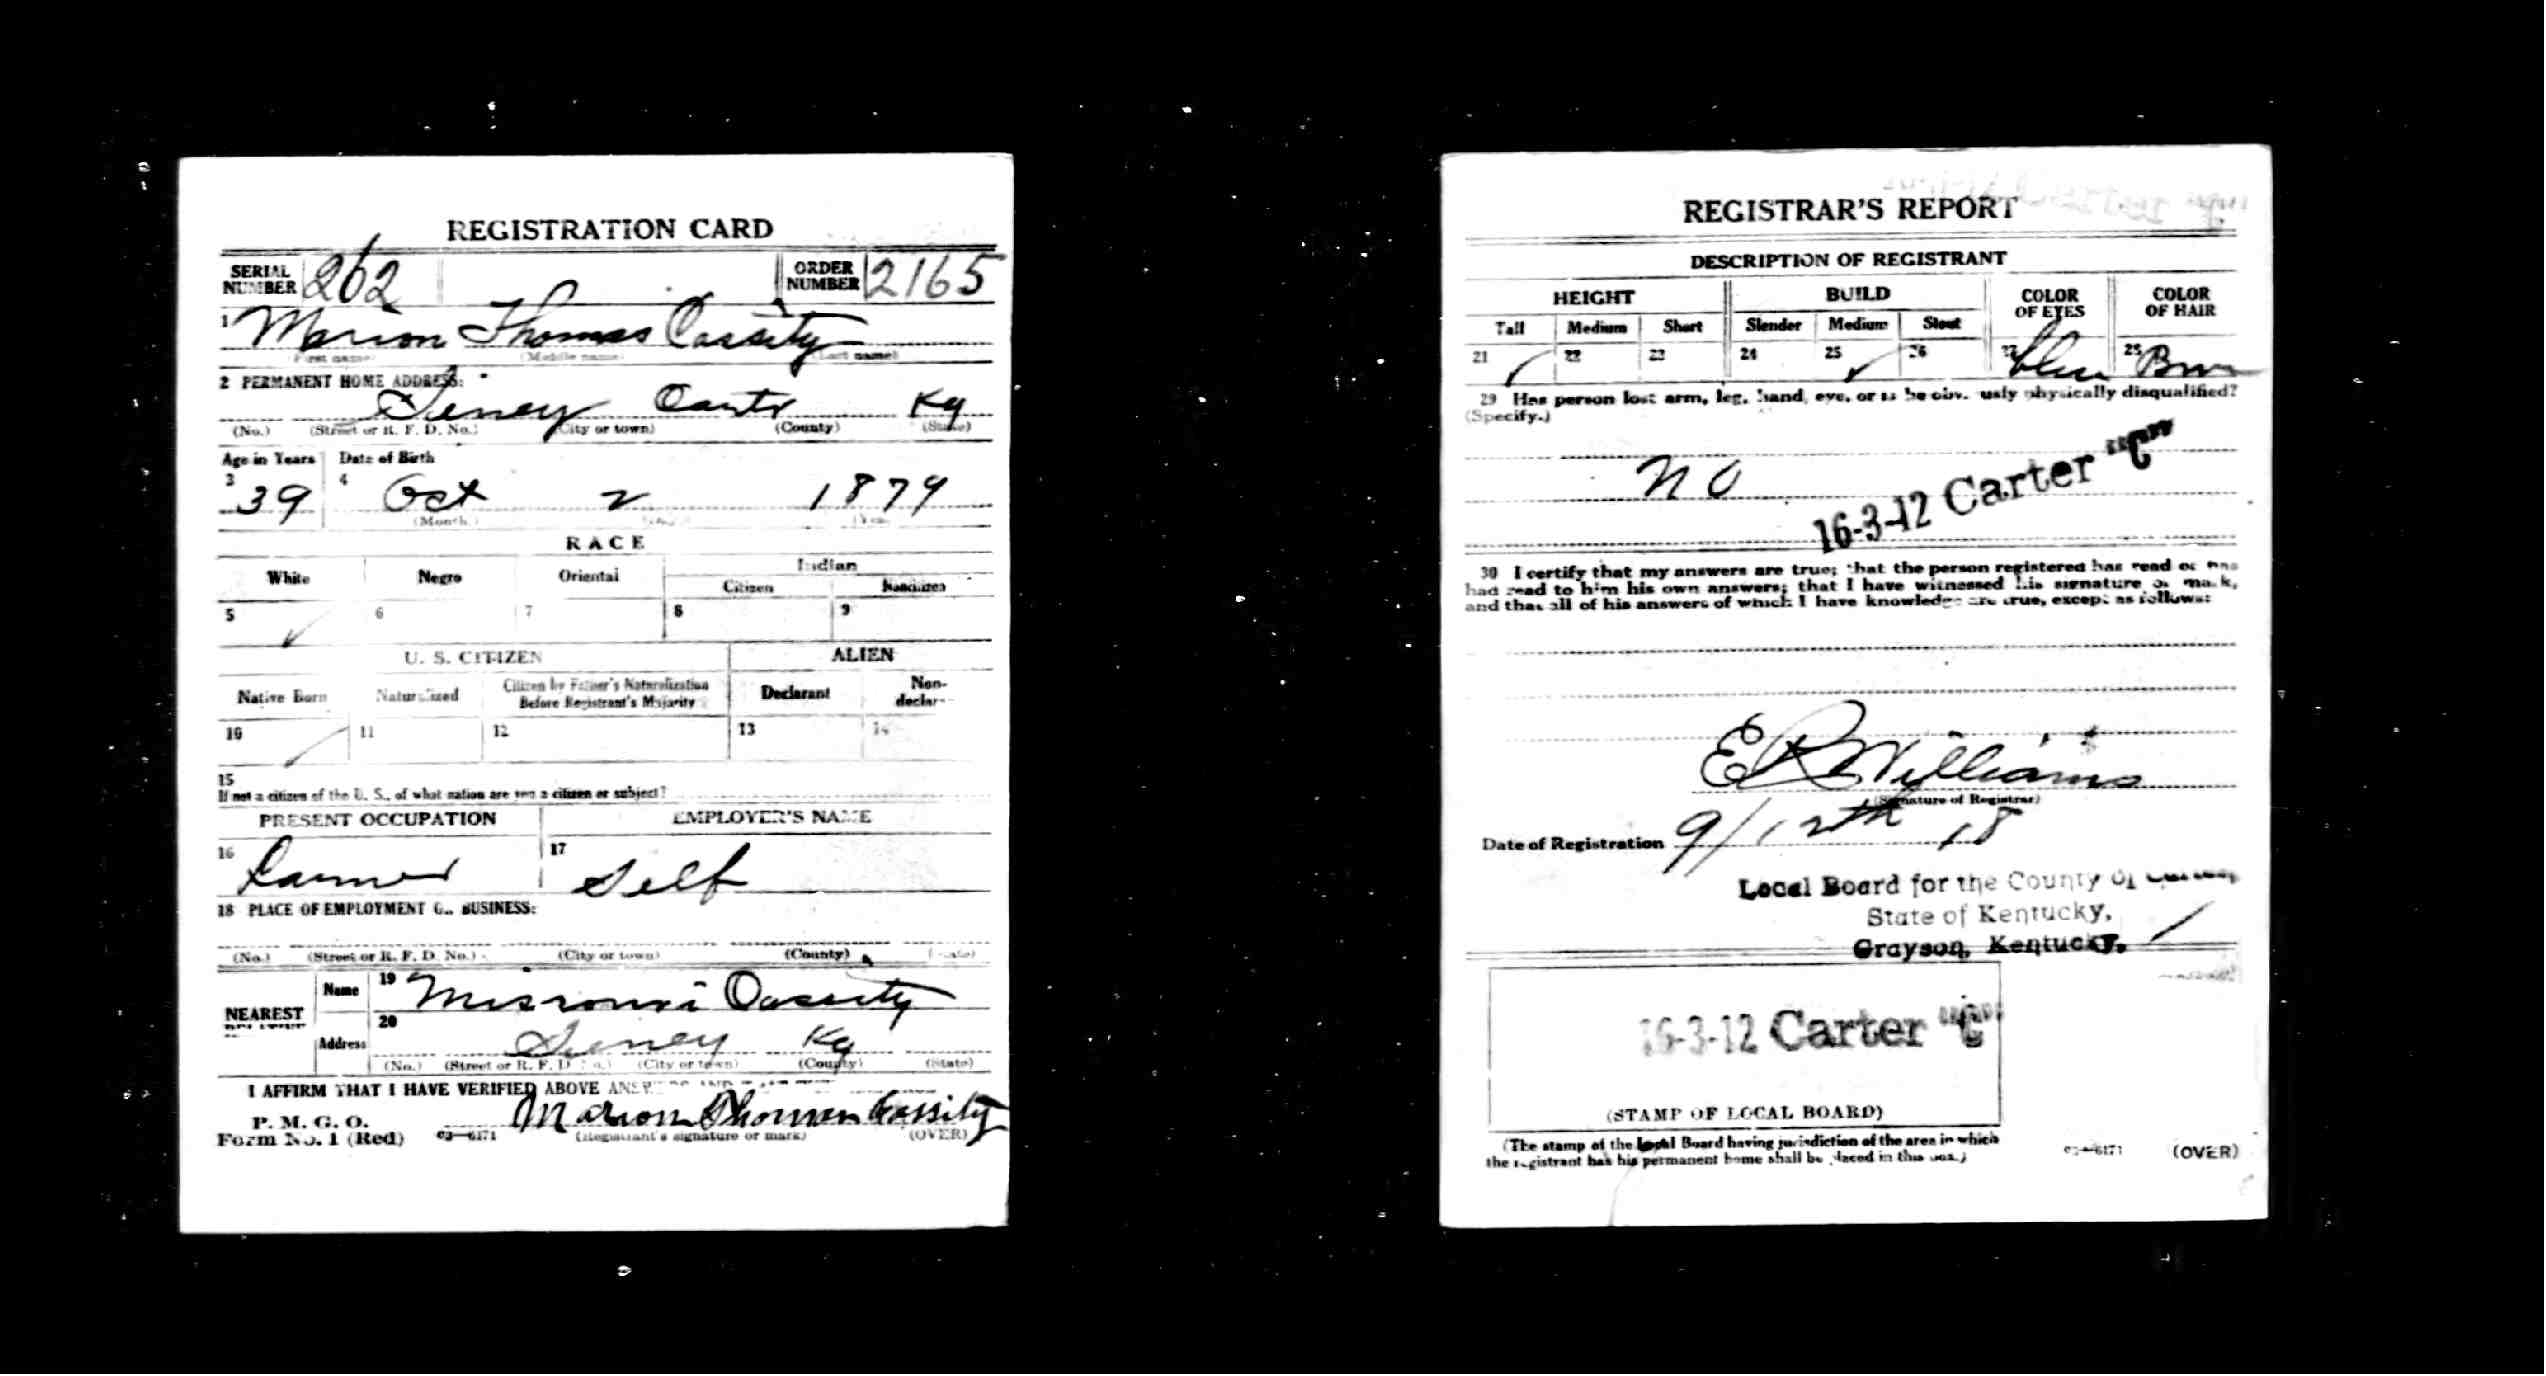 REGISTRATION CARD
SERIAL NUMBER 262 ORDER NUMBER 2165
1 Marion Thomas Cassity
(First name) (Middle name) (Last name)
2 PERMANENT HOME ADDRESS:
Carter Ky
(No.) (Street or R. F. D. No.) (City or town) (County) (State)
Age in Years Date of Birth
3 39 4 Oct 2 1879
(Month.) (Year)
RACE
White Negro Oriental Indian
Citizen Noncitizen
5 ✓ 6 7 8 9
U. S. CITIZEN ALIEN
Native Born Naturalized Citizen by Father's Naturalization Before Registrant's Majority Declarant Non-declar-
10 ✓ 11 12 13 14
15
If not a citizen of the U. S., of what nation are you a citizen or subject?
PRESENT OCCUPATION EMPLOYER'S NAME
16 Farmer 17 Self
18 PLACE OF EMPLOYMENT OR BUSINESS:
(No.) (Street or R. F. D. No.) (City or town) (County) (State)
NEAREST RELATIVE
Name 19 Missouri Cassity
Address 20 Ky
(No.) (Street or R. F. D. No.) (City or town) (County) (State)
I AFFIRM THAT I HAVE VERIFIED ABOVE
P. M. G. O.
Form No. 1 (Red) 03—6171 Marion Thomas Cassity
(Registrant's signature or mark) (OVER)
REGISTRAR'S REPORT
DESCRIPTION OF REGISTRANT
HEIGHT BUILD COLOR OF EYES COLOR OF HAIR
Tall Medium Short Slender Medium Stout
21 ✓ 22 23 24 25 ✓ 26 27 blue 28 Brn
29 Has person lost arm, leg, hand, eye, or is he obviously physically disqualified?
(Specify.)
no
16-3-12 Carter "C"
30 I certify that my answers are true; that the person registered has read or has
had read to him his own answers; that I have witnessed his signature or mark,
and that all of his answers of which I have knowledge are true, except as follows:
E R Williams
(Signature of Registrar)
Date of Registration 9/12th 18
Local Board for the County of Carter,
State of Kentucky,
Grayson, Kentucky.
16-3-12 Carter "C"
(STAMP OF LOCAL BOARD)
(The stamp of the Local Board having jurisdiction of the area in which
the registrant has his permanent home shall be placed in this box.)
03—6171 (OVER)